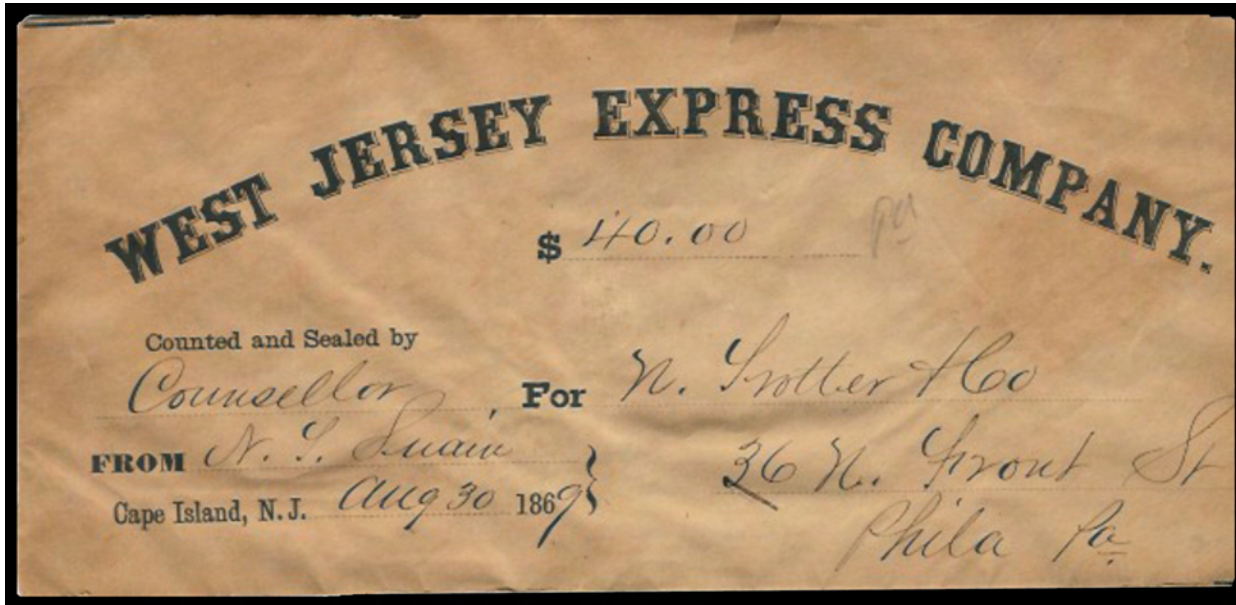 WEST JERSEY EXPRESS COMPANY.
$ 40.00 Pd
Counted and Sealed by
Counsellor, For N. Trotter & Co
FROM N. T. Swain
36 N. Front St
Cape Island, N.J. Aug 30 1869
Phila Pa